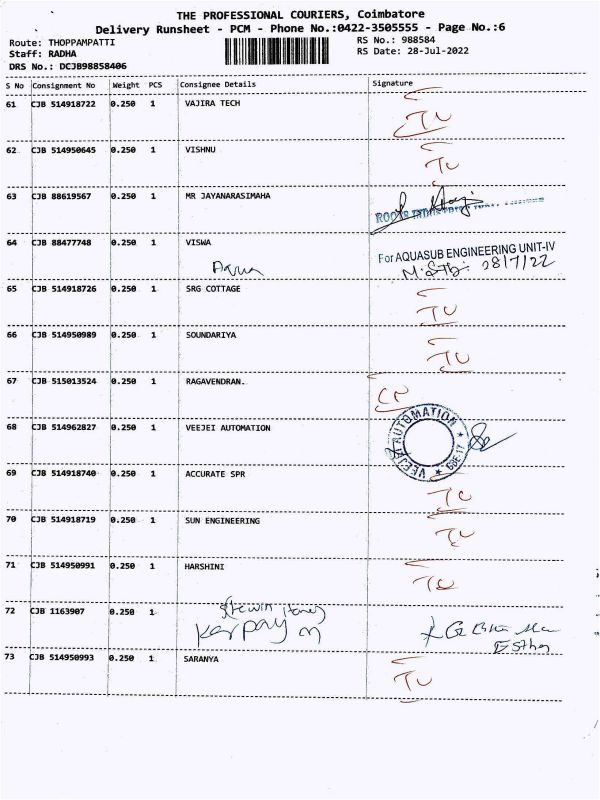 THE PROFESSIONAL COURIERS, Coimbatore
Delivery Runsheet - PCM - Phone No.:0422-3505555 - Page No.:6
Route: THOPPAMPATTI RS No.: 988584
Staff: RADHA RS Date: 28-Jul-2022
DRS No.: DCJB98858406
S No Consignment No Weight PCS Consignee Details Signature
61 CJB 514918722 0.250 1 VAJIRA TECH TU
62 CJB 514950645 0.250 1 VISHNU TU
63 CJB 88619567 0.250 1 MR JAYANARASIMAHA
64 CJB 88477748 0.250 1 VISWA For AQUASUB ENGINEERING UNIT-IV
28/7/22
65 CJB 514918726 0.250 1 SRG COTTAGE TU
66 CJB 514950989 0.250 1 SOUNDARIYA TU
67 CJB 515013524 0.250 1 RAGAVENDRAN.
68 CJB 514962827 0.250 1 VEEJEI AUTOMATION VEEJEI AUTOMATION
69 CJB 514918740 0.250 1 ACCURATE SPR TU
70 CJB 514918719 0.250 1 SUN ENGINEERING TU
71 CJB 514950991 0.250 1 HARSHINI TU
72 CJB 1163907 0.250 1
Esther
73 CJB 514950993 0.250 1 SARANYA TU